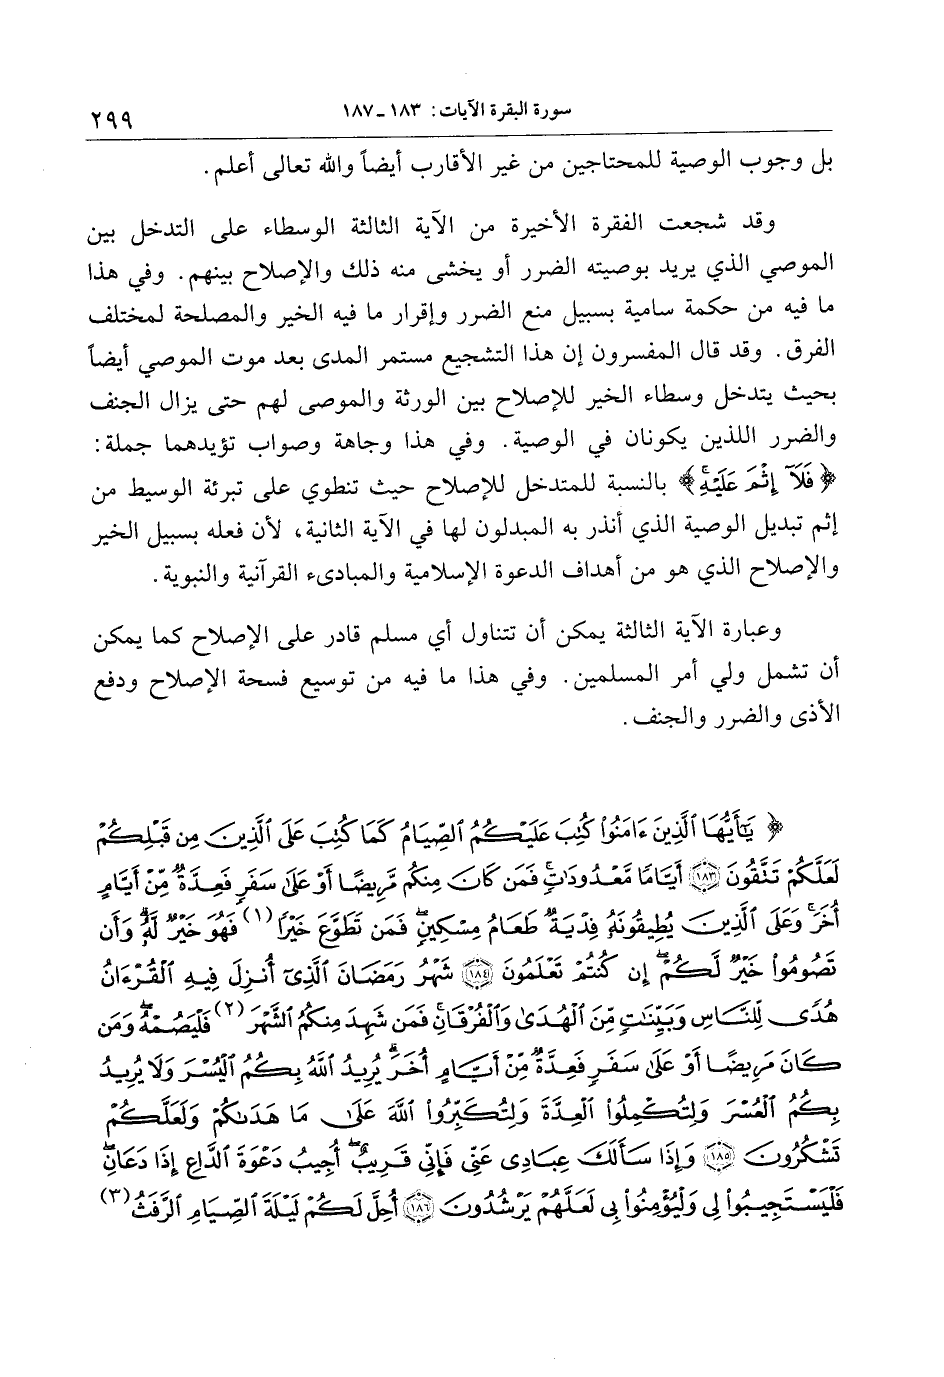 سورة البقرة الآيات: ١٨٣ ـ ١٨٧ ٢٩٩
بل وجوب الوصية للمحتاجين من غير الأقارب أيضاً والله تعالى أعلم.
وقد شجعت الفقرة الأخيرة من الآية الثالثة الوسطاء على التدخل بين
الموصي الذي يريد بوصيته الضرر أو يخشى منه ذلك والإصلاح بينهم. وفي هذا
ما فيه من حكمة سامية بسبيل منع الضرر وإقرار ما فيه الخير والمصلحة لمختلف
الفرق. وقد قال المفسرون إن هذا التشجيع مستمر المدى بعد موت الموصي أيضاً
بحيث يتدخل وسطاء الخير للإصلاح بين الورثة والموصى لهم حتى يزال الجنف
والضرر اللذين يكونان في الوصية. وفي هذا وجاهة وصواب تؤيدهما جملة:
﴿فَلَآ إِثْمَ عَلَيْهِۚ﴾ بالنسبة للمتدخل للإصلاح حيث تنطوي على تبرئة الوسيط من
إثم تبديل الوصية الذي أنذر به المبدلون لها في الآية الثانية، لأن فعله بسبيل الخير
والإصلاح الذي هو من أهداف الدعوة الإسلامية والمبادىء القرآنية والنبوية.
وعبارة الآية الثالثة يمكن أن تتناول أي مسلم قادر على الإصلاح كما يمكن
أن تشمل ولي أمر المسلمين. وفي هذا ما فيه من توسيع فسحة الإصلاح ودفع
الأذى والضرر والجنف.
﴿يَٰٓأَيُّهَا ٱلَّذِينَ ءَامَنُواْ كُتِبَ عَلَيْكُمُ ٱلصِّيَامُ كَمَا كُتِبَ عَلَى ٱلَّذِينَ مِن قَبْلِكُمْ
لَعَلَّكُمْ تَتَّقُونَ ١٨٣ أَيَّامًا مَّعْدُودَٰتٍۚ فَمَن كَانَ مِنكُم مَّرِيضًا أَوْ عَلَىٰ سَفَرٍ فَعِدَّةٌ مِّنْ أَيَّامٍ
أُخَرَۚ وَعَلَى ٱلَّذِينَ يُطِيقُونَهُۥ فِدْيَةٌ طَعَامُ مِسْكِينٍۖ فَمَن تَطَوَّعَ خَيْرًا (١) فَهُوَ خَيْرٌ لَّهُۥۚ وَأَن
تَصُومُواْ خَيْرٌ لَّكُمْۖ إِن كُنتُمْ تَعْلَمُونَ ١٨٤ شَهْرُ رَمَضَانَ ٱلَّذِىٓ أُنزِلَ فِيهِ ٱلْقُرْءَانُ
هُدًى لِّلنَّاسِ وَبَيِّنَٰتٍ مِّنَ ٱلْهُدَىٰ وَٱلْفُرْقَانِۚ فَمَن شَهِدَ مِنكُمُ ٱلشَّهْرَ (٢) فَلْيَصُمْهُۖ وَمَن
كَانَ مَرِيضًا أَوْ عَلَىٰ سَفَرٍ فَعِدَّةٌ مِّنْ أَيَّامٍ أُخَرَۗ يُرِيدُ ٱللَّهُ بِكُمُ ٱلْيُسْرَ وَلَا يُرِيدُ
بِكُمُ ٱلْعُسْرَ وَلِتُكْمِلُواْ ٱلْعِدَّةَ وَلِتُكَبِّرُواْ ٱللَّهَ عَلَىٰ مَا هَدَىٰكُمْ وَلَعَلَّكُمْ
تَشْكُرُونَ ١٨٥ وَإِذَا سَأَلَكَ عِبَادِى عَنِّى فَإِنِّى قَرِيبٌۖ أُجِيبُ دَعْوَةَ ٱلدَّاعِ إِذَا دَعَانِۖ
فَلْيَسْتَجِيبُواْ لِى وَلْيُؤْمِنُواْ بِى لَعَلَّهُمْ يَرْشُدُونَ ١٨٦ أُحِلَّ لَكُمْ لَيْلَةَ ٱلصِّيَامِ ٱلرَّفَثُ (٣)